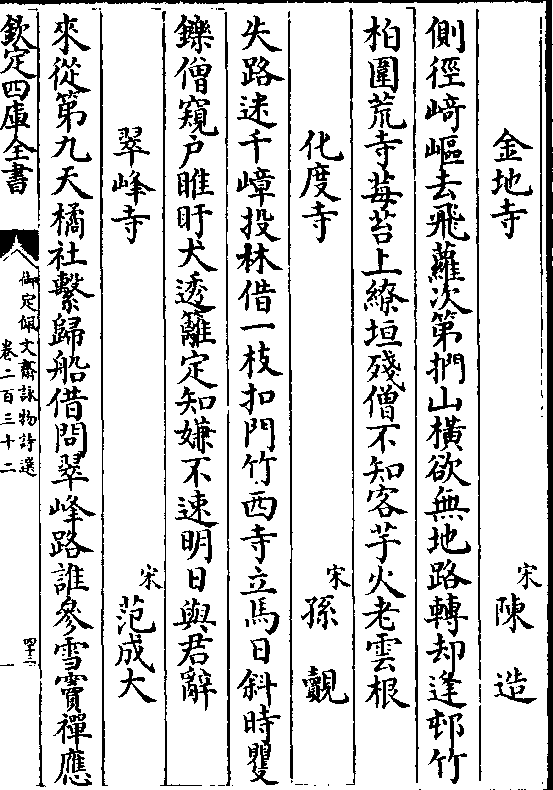 金地寺 宋 陳造
側徑﨑嶇去飛蘿次第捫山橫欲無地路轉却逢邨竹
柏圍荒寺莓苔上繚垣殘僧不知客芋火老雲根
化度寺 宋 孫覿
失路迷千嶂投林借一枝扣門竹西寺立馬日斜時矍
鑠僧窺户睢盱犬透籬定知嫌不速明日與君辭
翠峰寺 宋 范成大
來從第九天橘社繫歸船借問翠峰路誰參雪竇禪應
欽定四庫全書
御定佩文齋詠物詩選
卷二百三十二